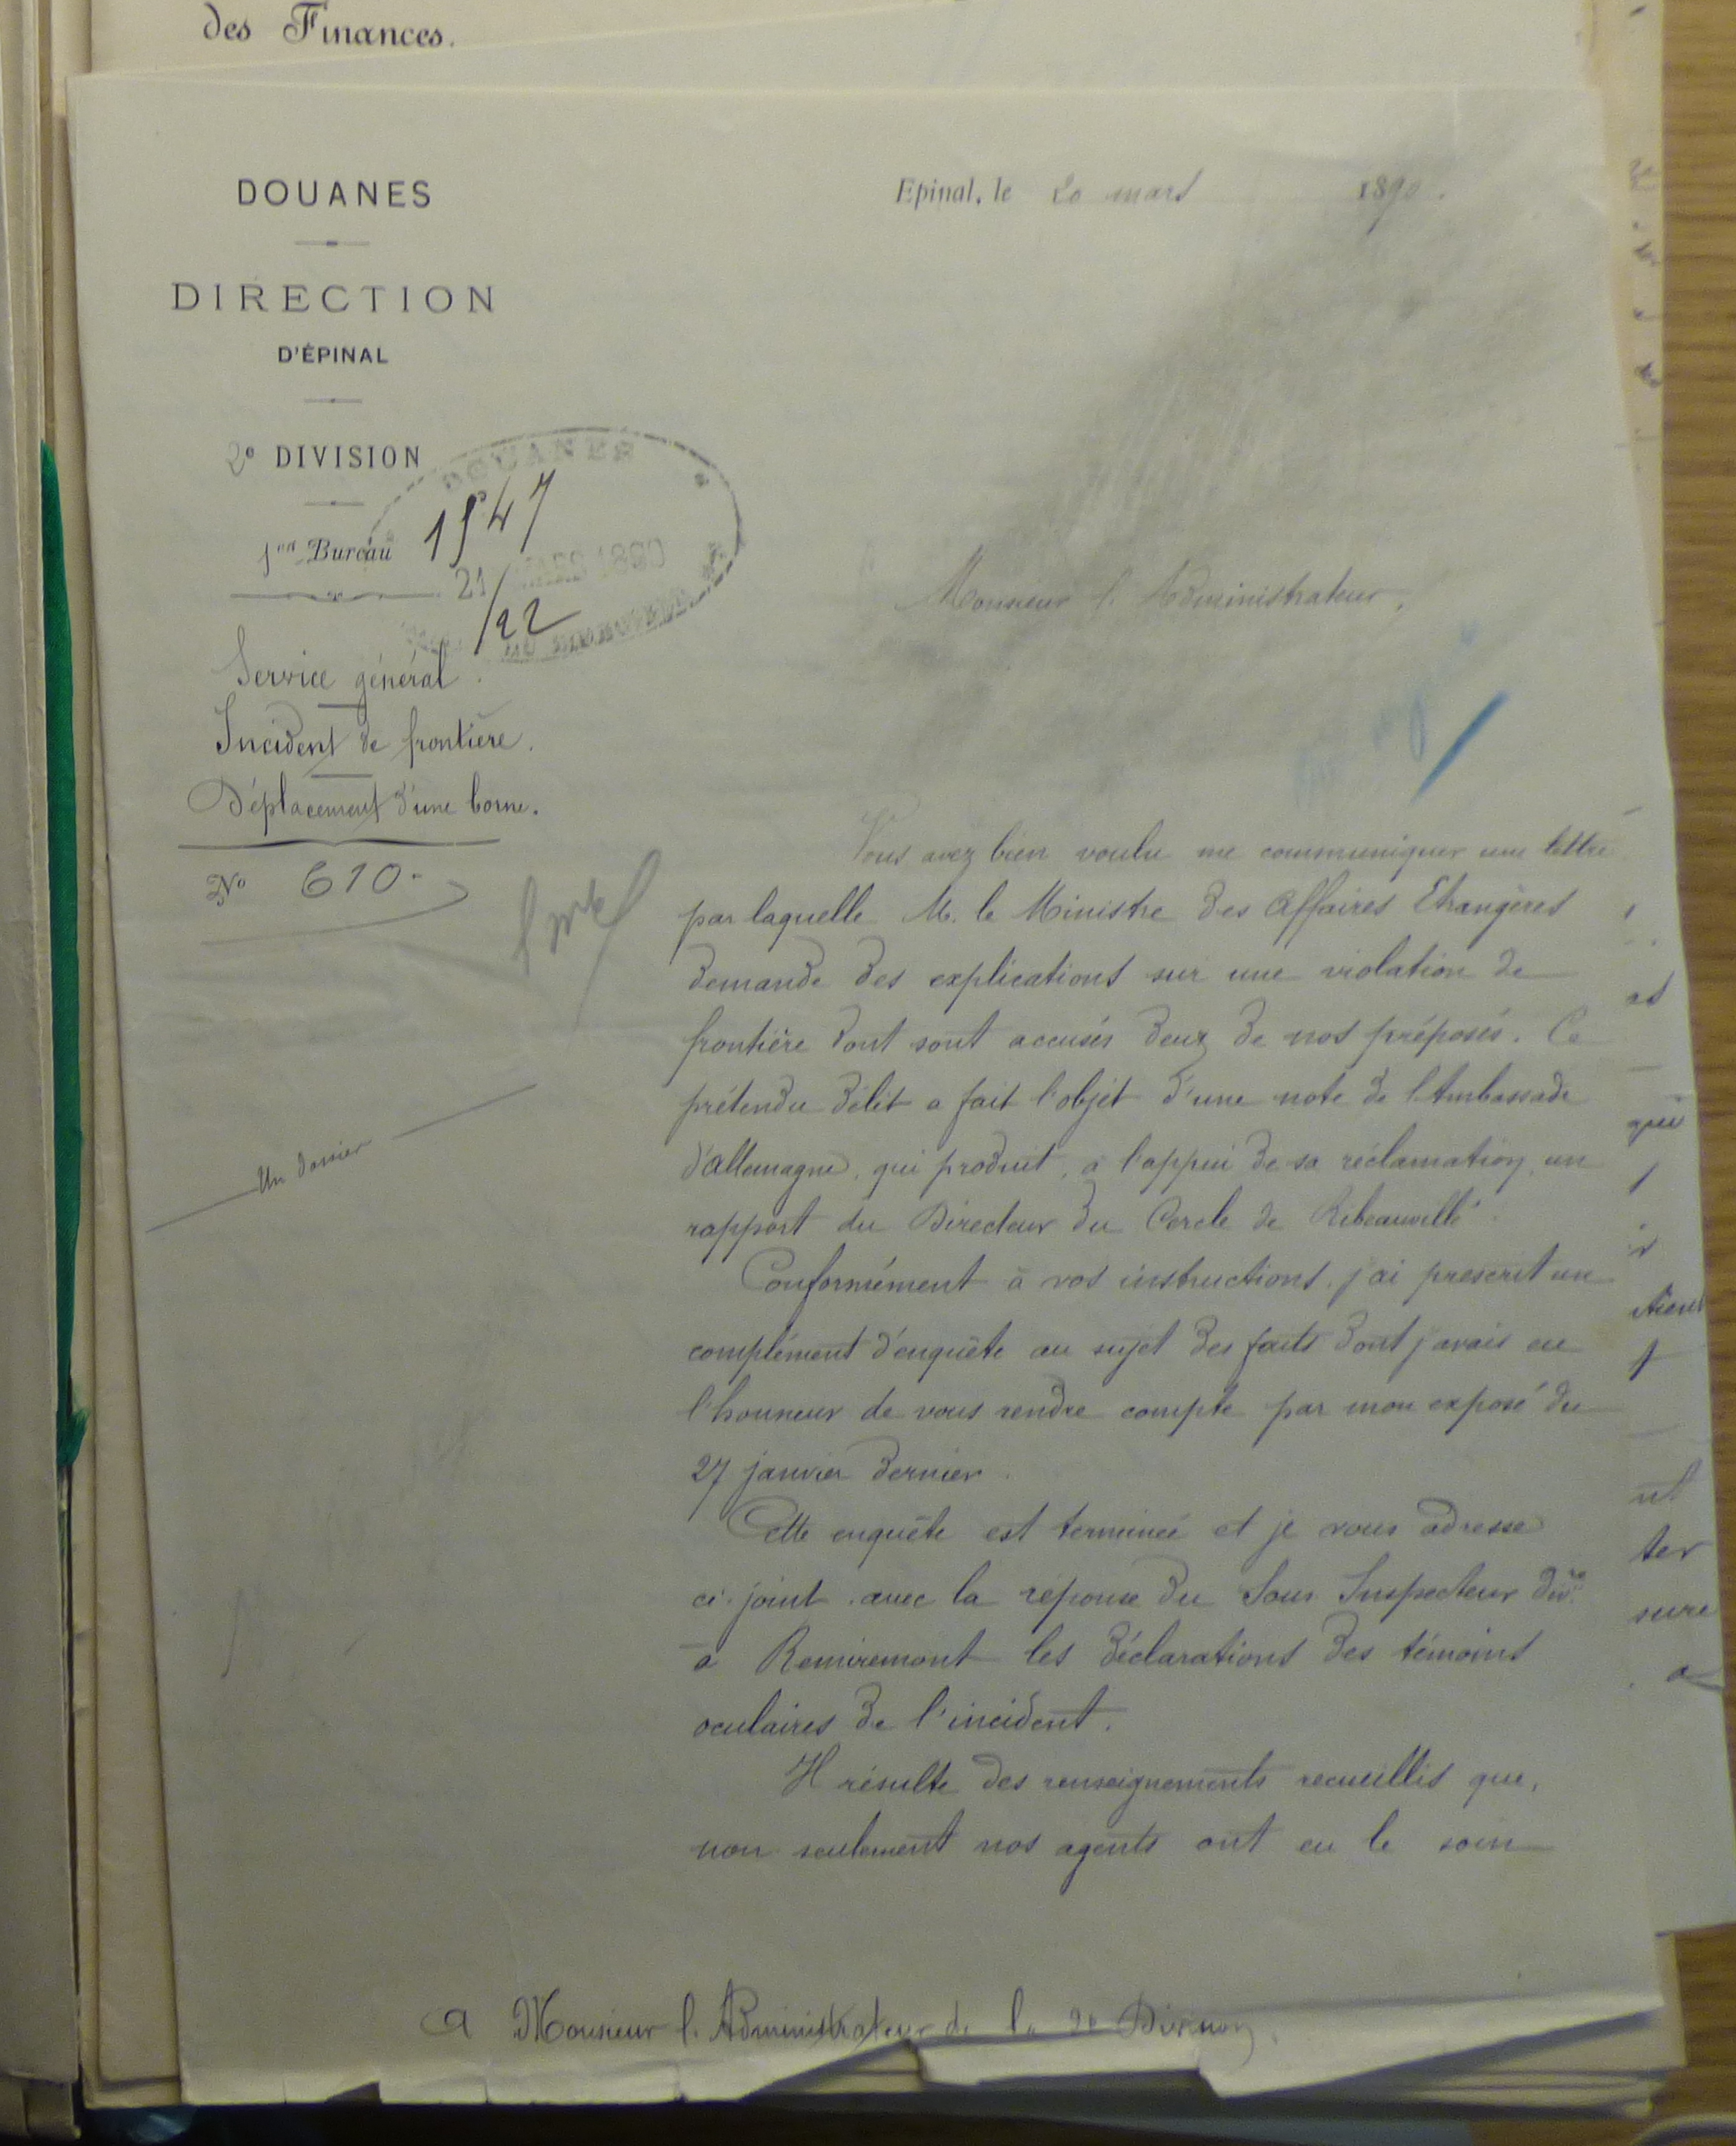 des Finances.
DOUANES
DIRECTION
D'ÉPINAL
2e DIVISION
1er Bureau
DOUANES
1547
21 MARS 1890
/22
Service général.
Incident de frontière.
Déplacement d'une borne.
No 610.
Un dossier
Epinal, le 20 mars 1890.
Monsieur l'Administrateur,
Vous avez bien voulu me communiquer une lettre
par laquelle M. le Ministre des Affaires Etrangères
demande des explications sur une violation de
frontière dont sont accusés deux de nos préposés. Ce
prétendu délit a fait l'objet d'une note de l'Ambassade
d'allemagne, qui produit, à l'appui de sa réclamation, un
rapport du Directeur du Cercle de Ribeauvillé.
Conformément à vos instructions, j'ai prescrit un
complément d'enquête au sujet des faits dont j'avais eu
l'honneur de vous rendre compte par mon exposé du
27 janvier dernier.
Cette enquête est terminée et je vous adresse
ci-joint, avec la réponse du Sous Inspecteur divre
à Remiremont les déclarations des témoins
oculaires de l'incident.
Il résulte des renseignements recueillis que,
non seulement nos agents ont eu le soin
A Monsieur l'Administrateur de la 2e Division.
qui
ter